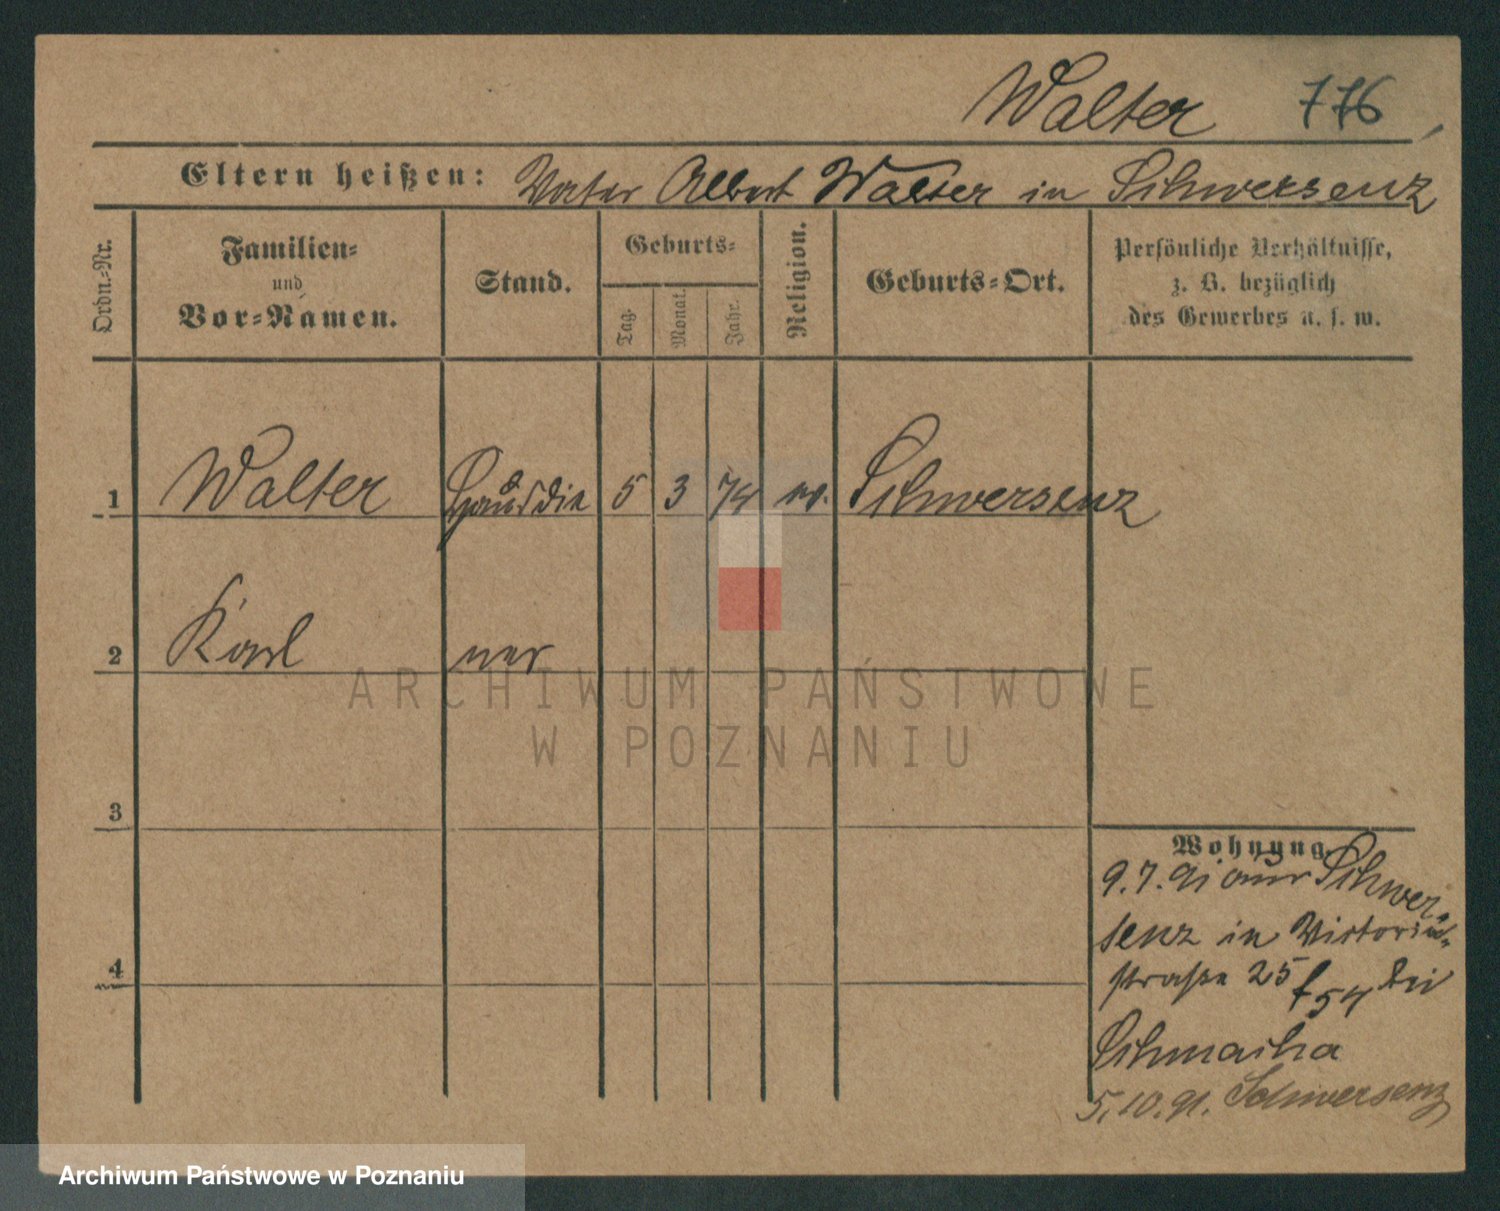 Walter 776
Eltern heißen: Vater Albert Walter in Schwersenz
Ordn.-Nr.
Familien-
und
Vor-Namen.
Stand.
Geburts-
Tag.
Monat.
Jahr.
Religion.
Geburts-Ort.
Persönliche Verhältnisse,
z. B. bezüglich
des Gewerbes u. s. w.
1 Walter Hausdie 5 3 74 Schwersenz
2 Karl ner
3
4
Wohnung.
9.7.91 aus Schwer-
senz in Victoria-
straße 25 bei
5.10.91. Schwersenz
ARCHIWUM PAŃSTWOWE
W POZNANIU
Archiwum Państwowe w Poznaniu